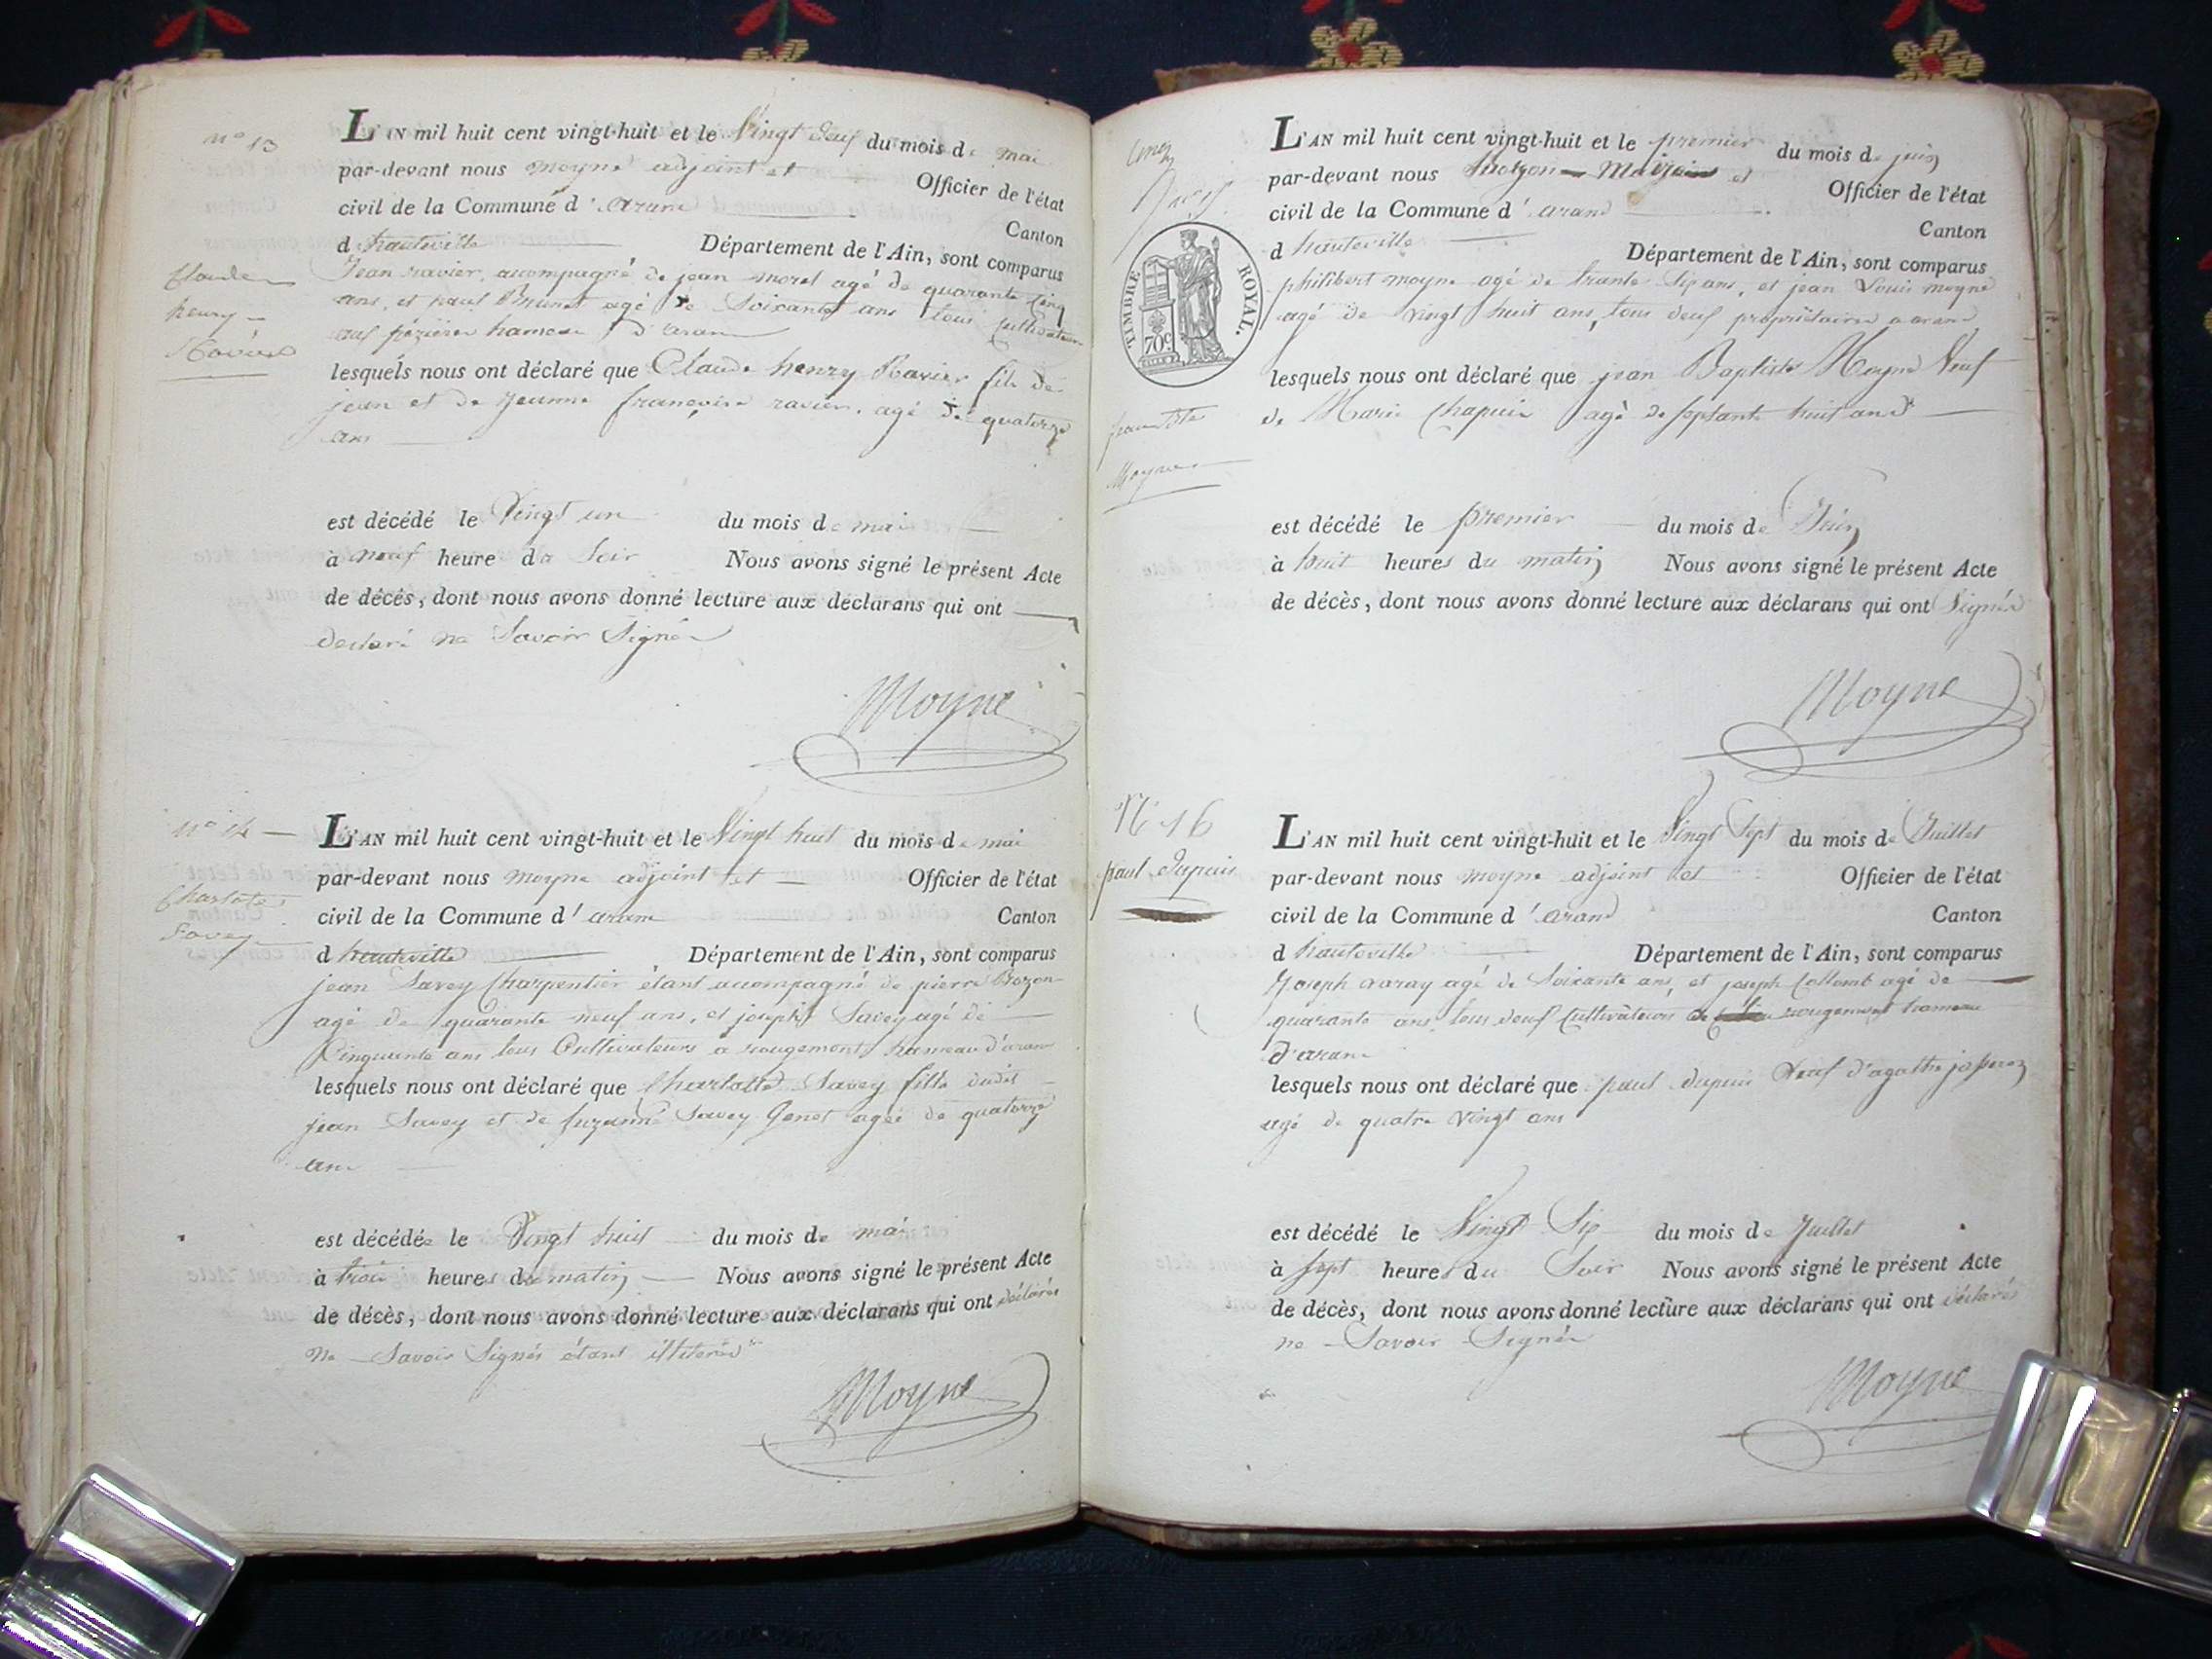 n° 13
L'AN mil huit cent vingt-huit et le Vingt deux du mois de mai
par-devant nous moyne adjoint et Officier de l'état
civil de la Commune d'arane Canton
d hauteville Département de l'Ain, sont comparus
Jean ravier, accompagné de jean morel agé de quarante cinq
ans, et paul Brunet agé de Soixante ans tous Cultivateurs
aux pezières hameau d'aran
Claude
henry
Ravier
lesquels nous ont déclaré que Claude henry Ravier fils de
jean et de jeanne françoise ravier, agé de quatorze
ans
est décédé le Vingt un du mois de mai
à neuf heure du Soir Nous avons signé le présent Acte
de décès, dont nous avons donné lecture aux déclarans qui ont
declaré ne Savoir Signer
Moyne
n° 14
L'AN mil huit cent vingt-huit et le Vingt huit du mois de mai
par-devant nous moyne adjoint et Officier de l'état
civil de la Commune d'arane Canton
Charlotte
Savey
d hauteville Département de l'Ain, sont comparus
jean Savey Charpentier étant accompagné de pierre Bozon
agé de quarante neuf ans, et joseph Savey agé de
Cinquante ans tous Cultivateurs a rougemont hameau d'aran
lesquels nous ont déclaré que Charlotte Savey fille dudit
jean Savey et de Suzanne Savey Genet agée de quatorze
ans
est décédée le Vingt huit du mois de mai
à trois heures du matin Nous avons signé le présent Acte
de décès, dont nous avons donné lecture aux déclarans qui ont déclarés
ne Savoir Signés étant illiterés
Moyne
L'AN mil huit cent vingt-huit et le premier du mois de juin
par-devant nous et Officier de l'état
civil de la Commune d'arand Canton
d hauteville Département de l'Ain, sont comparus
TIMBRE ROYAL.
70c
philibert moyne agé de trante Six ans, et jean Louis moyne
agé de vingt huit ans, tous deux propriétaires a arand
lesquels nous ont déclaré que jean Baptiste Moyne Veuf
de Marie Chapuis agé de Septante huit ans
jean Bte
Moyne
est décédé le premier du mois de Juin
à huit heures du matin Nous avons signé le présent Acte
de décès, dont nous avons donné lecture aux déclarans qui ont Signés
Moyne
N° 16
paul dupuis
L'AN mil huit cent vingt-huit et le Vingt Sept du mois de Juillet
par-devant nous moyne adjoint et Officier de l'état
civil de la Commune d'arand Canton
d hauteville Département de l'Ain, sont comparus
Joseph avray agé de Soixante ans, et joseph Collomb agé de
quarante ans tous deux Cultivateurs rougemont hameau
d'arane
lesquels nous ont déclaré que paul dupuis Veuf d'agathe
agé de quatre Vingt ans
est décédé le Vingt Six du mois de Juillet
à Sept heures du Soir Nous avons signé le présent Acte
de décès, dont nous avons donné lecture aux déclarans qui ont déclarés
ne Savoir Signér
Moyne